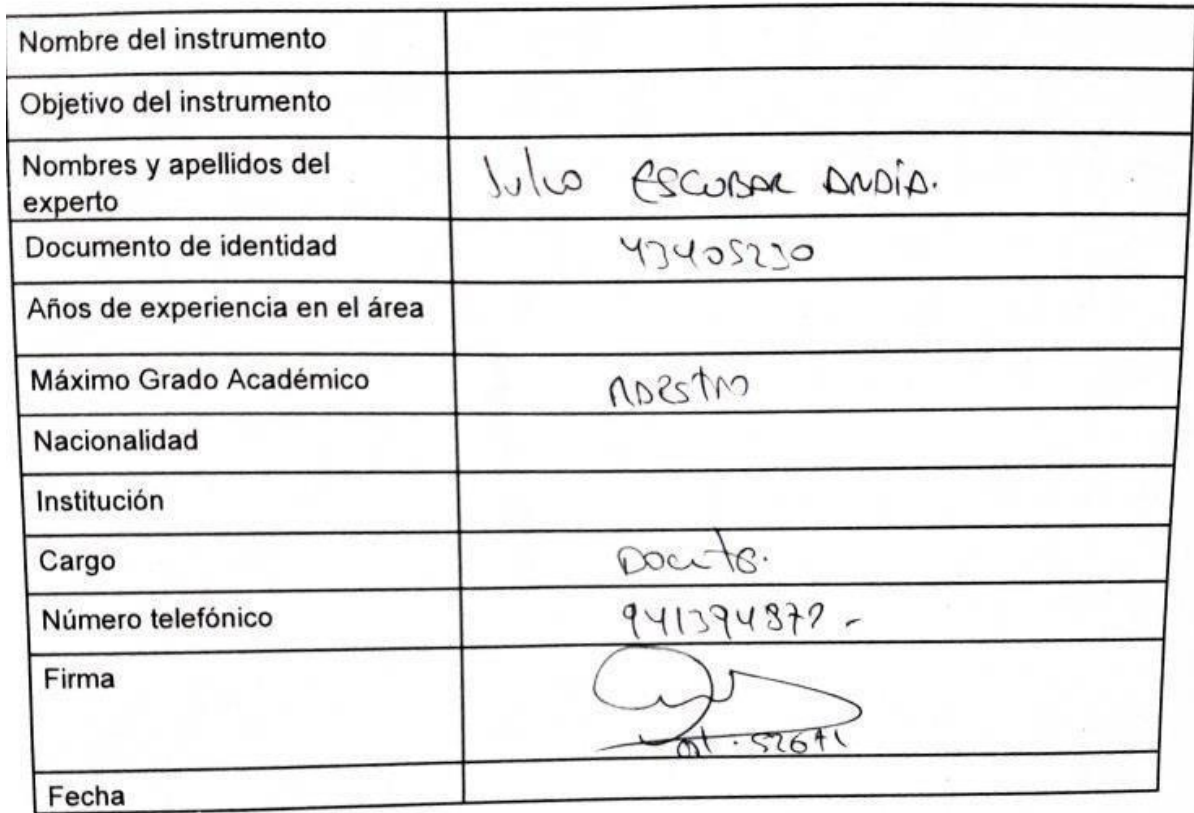 Nombre del instrumento
Objetivo del instrumento
Nombres y apellidos del
experto
Julio ESCOBAR ANDÍA.
Documento de identidad
43405230
Años de experiencia en el área
Máximo Grado Académico
MAESTRO
Nacionalidad
Institución
Cargo
Docente.
Número telefónico
Firma
Fecha